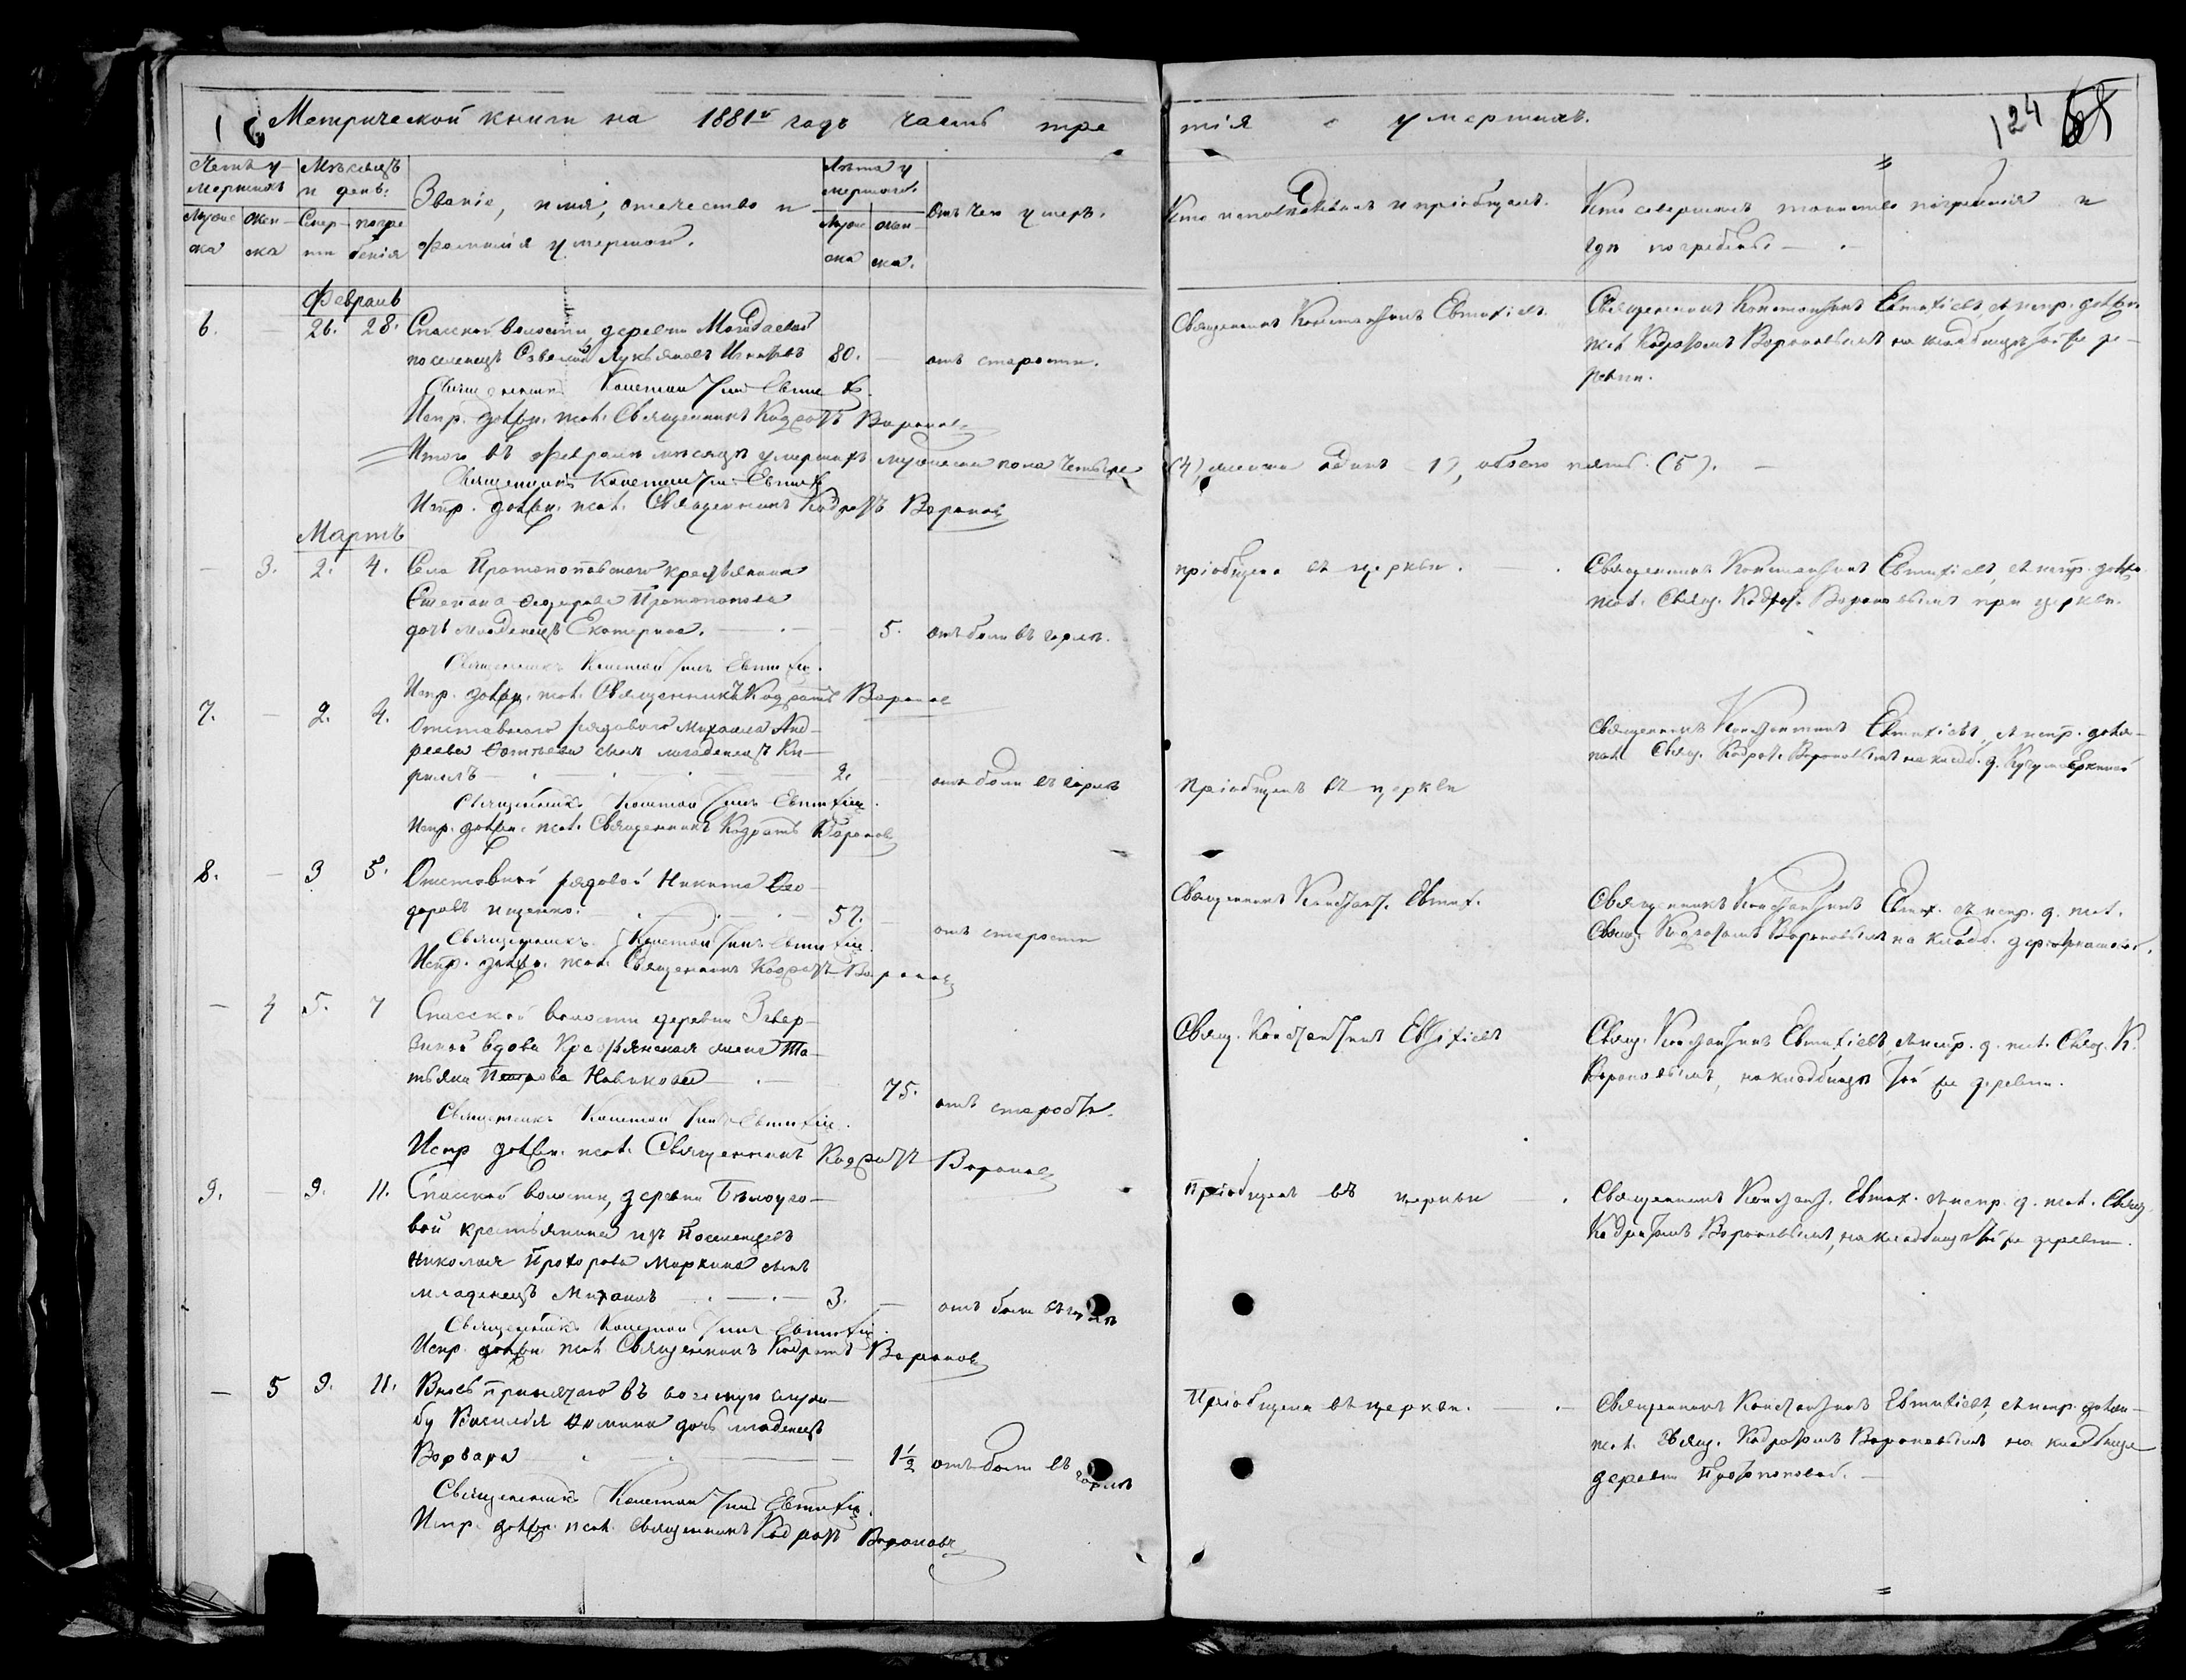 Метрической книги на 1881й годъ часть тре
тія о умершихъ. 124
Счетъ у-
мершихъ
Мѣсяцъ
и день.
Званіе, имя, отечество и
фамилія умершаго.
Лѣта у
мершаго.
Отъ чего умеръ.
Кто исповѣдывалъ и пріобщалъ.
Кто совершалъ таинство погребенія и
гдѣ погребены.
Муже
ска
жен-
ска
Смер-
ти
погре
бенія
Муже
ска
жен-
ска.
Февраль
6. — 26. 28. Спасской волости деревни
поселенецъ Лукьяновъ 80. — отъ старости.
Священникъ Константинъ Евтихіев
Испр. должн. псал. Священникъ Кодратъ Воронов
Священникъ Константинъ Евтихіевъ.
Священникъ Константинъ Евтихіевъ, съ испр. должн.
псал. Кодратомъ Вороновымъ на кладбищѣ той же де-
ревни.
Итого въ Февралѣ мѣсяцѣ умершихъ мужеска пола четыре
(4), женска одинъ 1), обоего пять. (5).
Священникъ Константинъ Евтихіев
Испр. должн. псал. Священникъ Кодратъ Воронов
Мартъ
— 3. 2. 4. Села Протопоповскаго крестьянина
Степана Ѳедорова Протопопова
дочь младенецъ Екатерина. — 5. отъ боли въ горлѣ.
Священникъ Константинъ Евтихіев
Испр. должн. псал. Священникъ Кодратъ Воронов
пріобщена въ церкви.
Священникъ Константинъ Евтихіевъ, съ испр. должн.
псал. Свящ. Кодрат. Вороновымъ при церкви.
7. — 2. 4. Отставнаго рядоваго Михаила Анд-
реева сынъ младенецъ Ки-
риллъ — 2. отъ боли въ горлѣ
Священникъ Константинъ Евтихіев
Испр. должн. псал. Священникъ Кодратъ Воронов
Пріобщенъ въ церкви
Священникъ Константинъ Евтихіевъ, съ испр. должн-
псал. Свящ. Кодрат. Вороновымъ на кладб. д.
8. — 3 5. Отставной рядовой Никита Ѳео-
доровъ Ищенко. — 57. — отъ старости
Священникъ Константинъ Евтихіев
Испр. должн. псал. Священникъ Кодратъ Воронов
Священникъ Констант. Евтих.
Священникъ Константинъ Евтих. съ испр. д. псал.
Свящ. Кодратомъ Вороновымъ на кладб.
— 4 5. 7 Спасской волости деревни Звер-
виной вдова Крестьянская жена Та-
тьяна Петрова Новикова — 75. отъ старости.
Священникъ Константинъ Евтихіев
Испр должн. псал. Священникъ Кодратъ Воронов
Свящ. Константинъ Евтихіевъ
Свящ. Константинъ Евтихіевъ, съ испр. д. псал. Свящ. К.
Вороновымъ, на кладбищѣ той же деревни.
9. — 9. 11. Спасской волости, деревни Бѣлоуго-
вой крестьянина изъ поселенцевъ
Николая Прохорова Маркина сынъ
младенецъ Михаилъ — 3. — отъ боли въ горлѣ
Священникъ Константинъ Евтихіев
Испр. должн. псал. Священникъ Кодратъ Воронов
Пріобщенъ въ церкви
Священникъ Констант. Евтих. съ испр. д. псал. Свящ.
Кодратомъ Вороновымъ, на кладбищѣ той же деревни.
— 5 9. 11. Вновь принятаго въ военную служ-
бу Василія Ѳомина дочь младенецъ
Варвара — 1½ отъ боли въ горлѣ
Священникъ Константинъ Евтихіев
Испр. должн. псал. Священникъ Кодратъ Вороновъ
Пріобщена въ церкви.
Священникъ Константинъ Евтихіевъ, съ испр. должн-
псал. Свящ. Кодратомъ Вороновымъ на кладбищѣ
деревни Протопоповой.